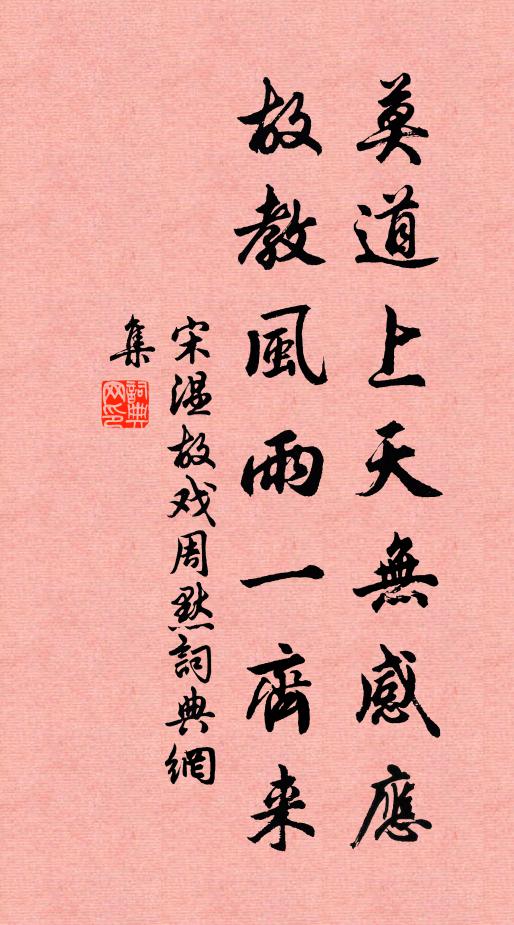 莫道上天無感應
故教風雨一齊来
宋温故戏周默詞典網
集
詞典
网印